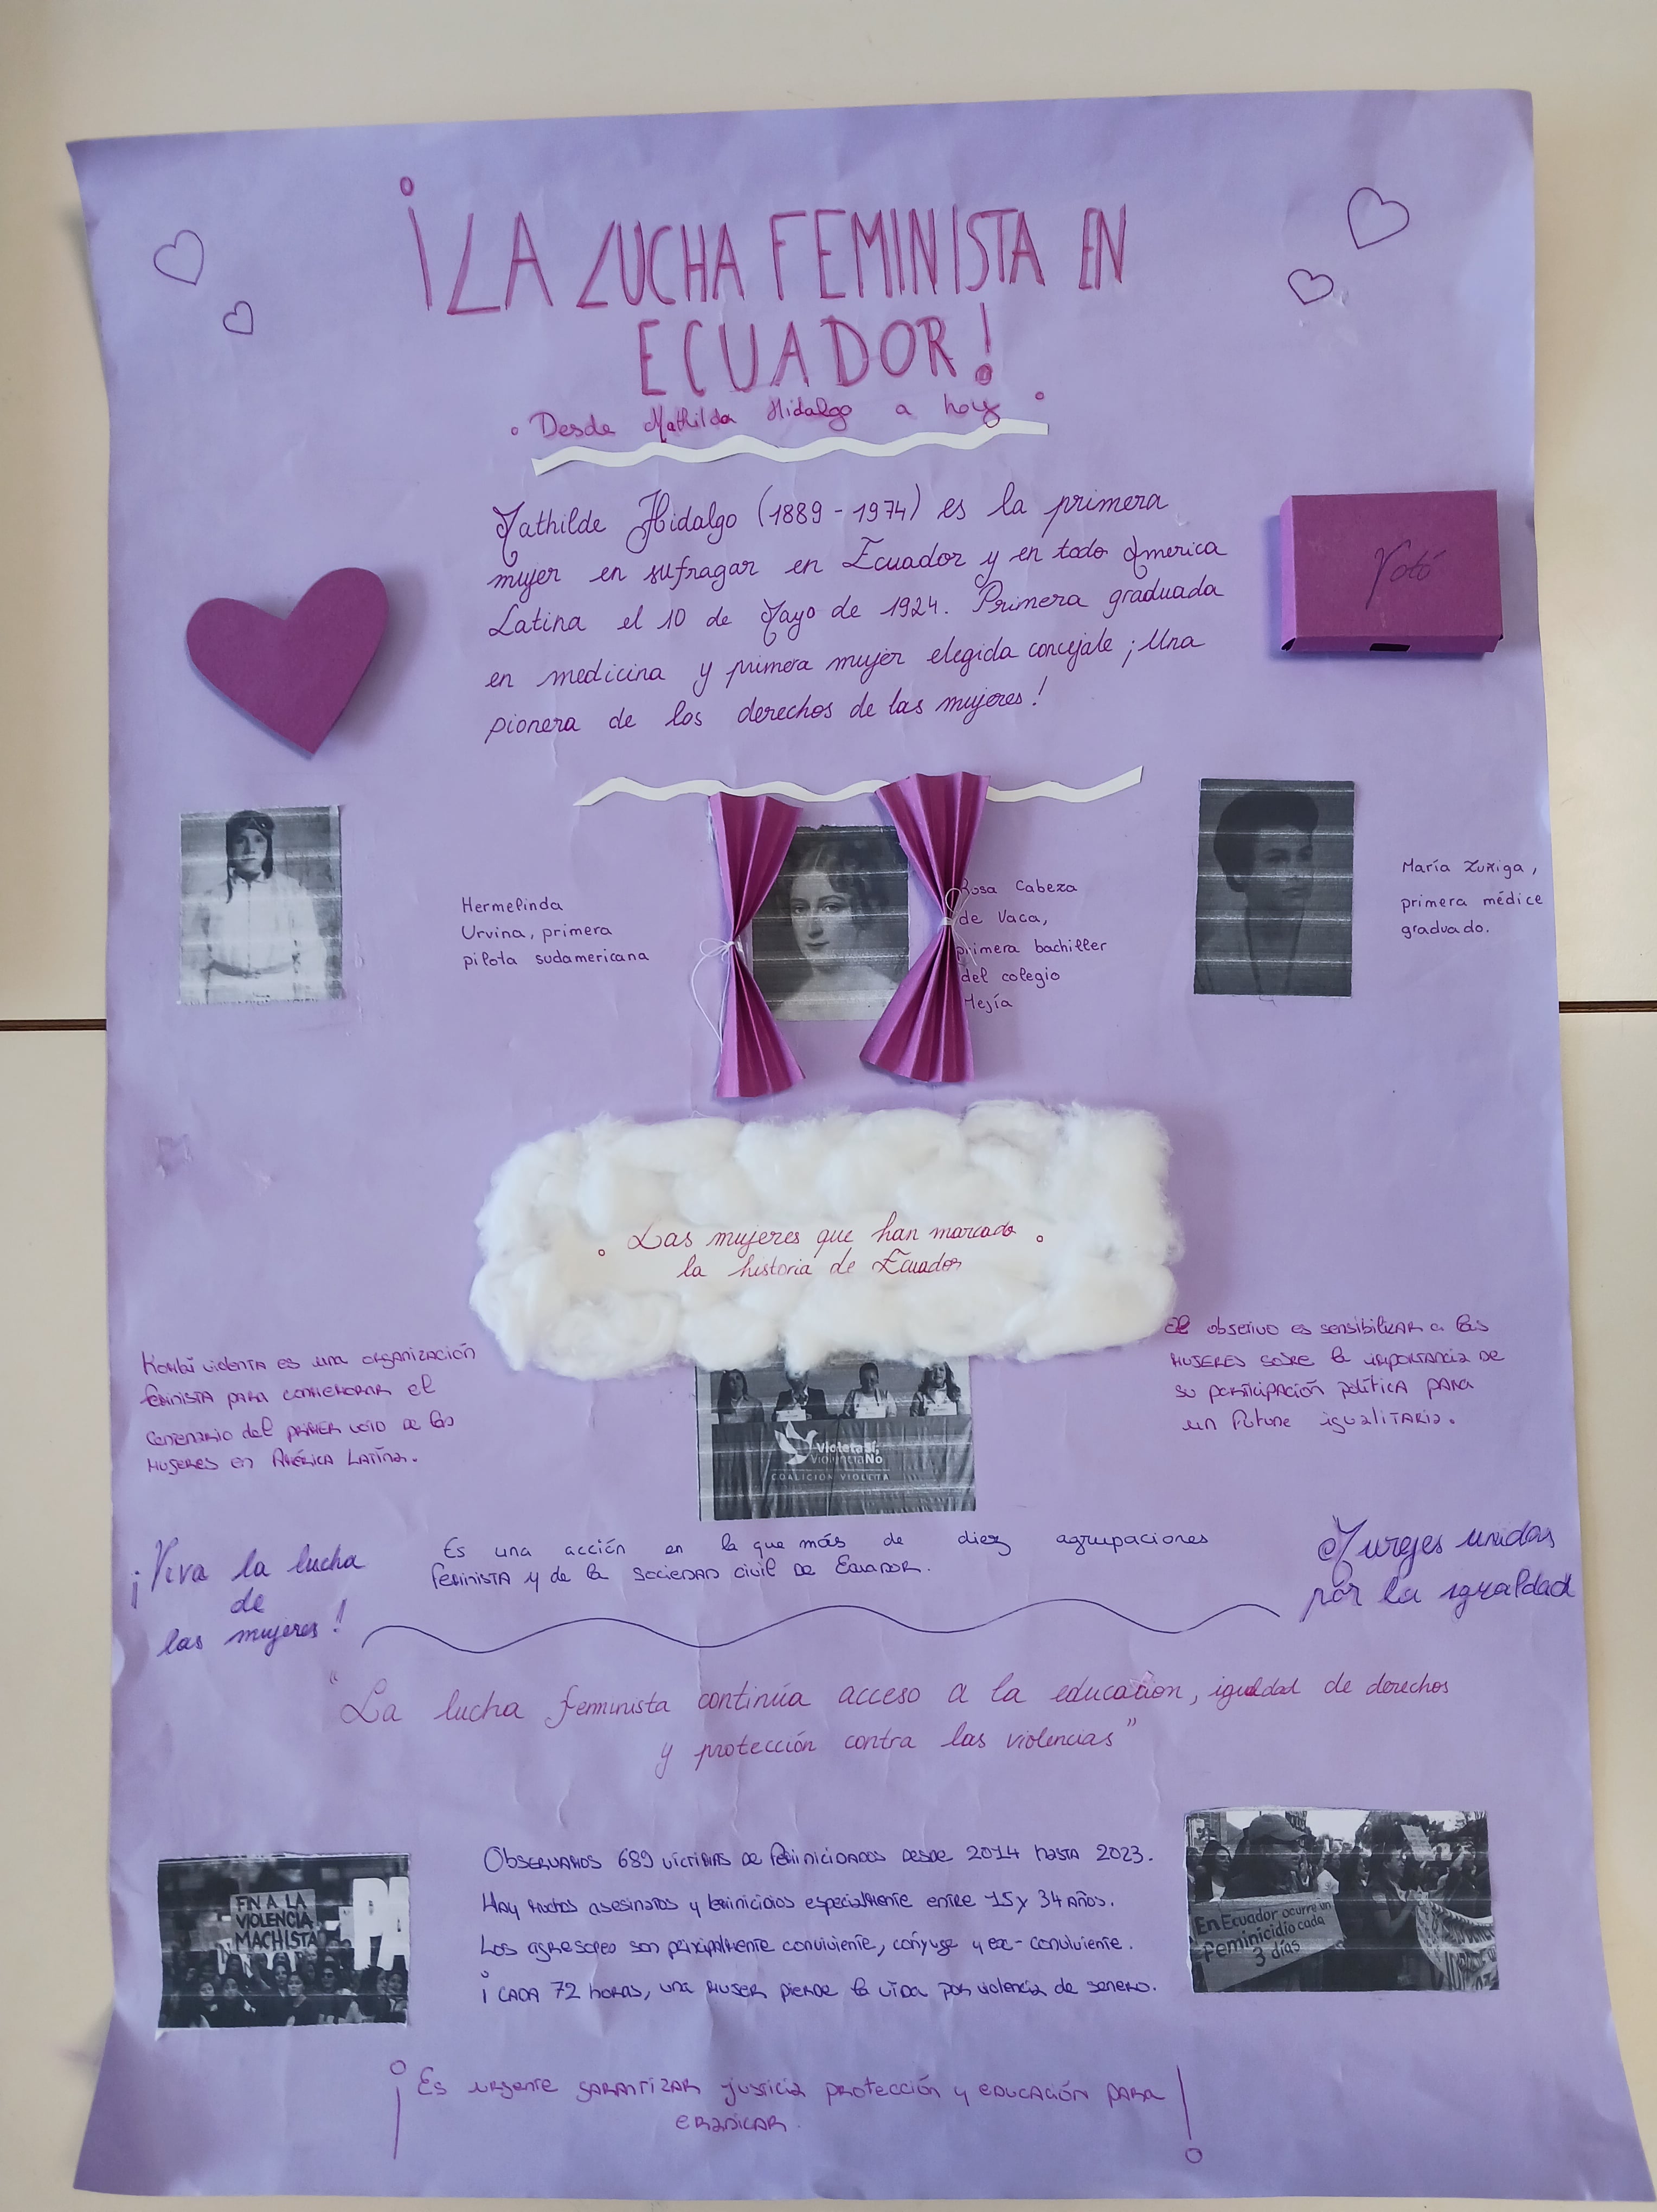 ¡LA LUCHA FEMINISTA EN
ECUADOR!
Desde Mathilda Hidalgo a hoy
Mathilde Hidalgo (1889-1974) es la primera
mujer en sufragar en Ecuador y en todo America
Latina el 10 de Mayo de 1924. Primera graduada
en medicina y primera mujer elegida concejale ¡Una
pionera de los derechos de las mujeres!
Votó
Hermelinda
Urvina, primera
pilota sudamericana
Rosa Cabeza
de Vaca,
primera bachiller
del colegio
Mejía
María Zuñiga,
primera médice
graduado.
Las mujeres que han marcado
la historia de Ecuador
violenta es una organización
feminista para conmemorar el
centenario del primer voto de las
mujeres en América Latina.
El objetivo es sensibilizar a las
mujeres sobre la importancia de
su participación política para
un future igualitaria.
Violeta Sí,
Violencia No
COALICIÓN VIOLETA
¡Viva la lucha
de
las mujeres!
Es una acción en la que más de diez agrupaciones
feminista y de la sociedad civil de Ecuador.
Murejes unidas
por la igualdad
"La lucha feminista continúa acceso a la educación, igualdad de derechos
y protección contra las violencias"
FIN A LA
VIOLENCIA
MACHISTA
PA
Observamos 689 víctimas de desde 2014 hasta 2023.
Hay muchos asesinatos y especialmente entre 15 y 34 años.
Los son principalmente conviviente, cónyuge y ex-conviviente.
¡Cada 72 horas, una mujer pierde la vida por violencia de genero.
En Ecuador ocurre un
Feminicidio cada
3 días
¡Es urgente garantizar justicia protección y educación para
eradicar.!